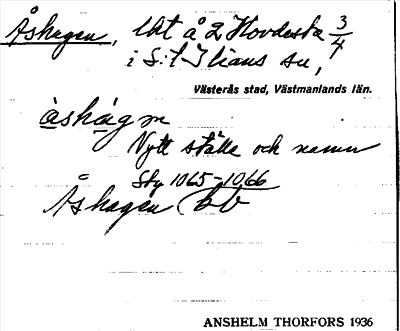 Åshagen, lht å 2 Hovdesta 3/4
i S:t Ilians sn,
Västerås stad, Västmanlands län.
àshágen
Nytt ställe och namn
Sty 1065-1066
Åshagen bb
ANSHELM THORFORS 1936